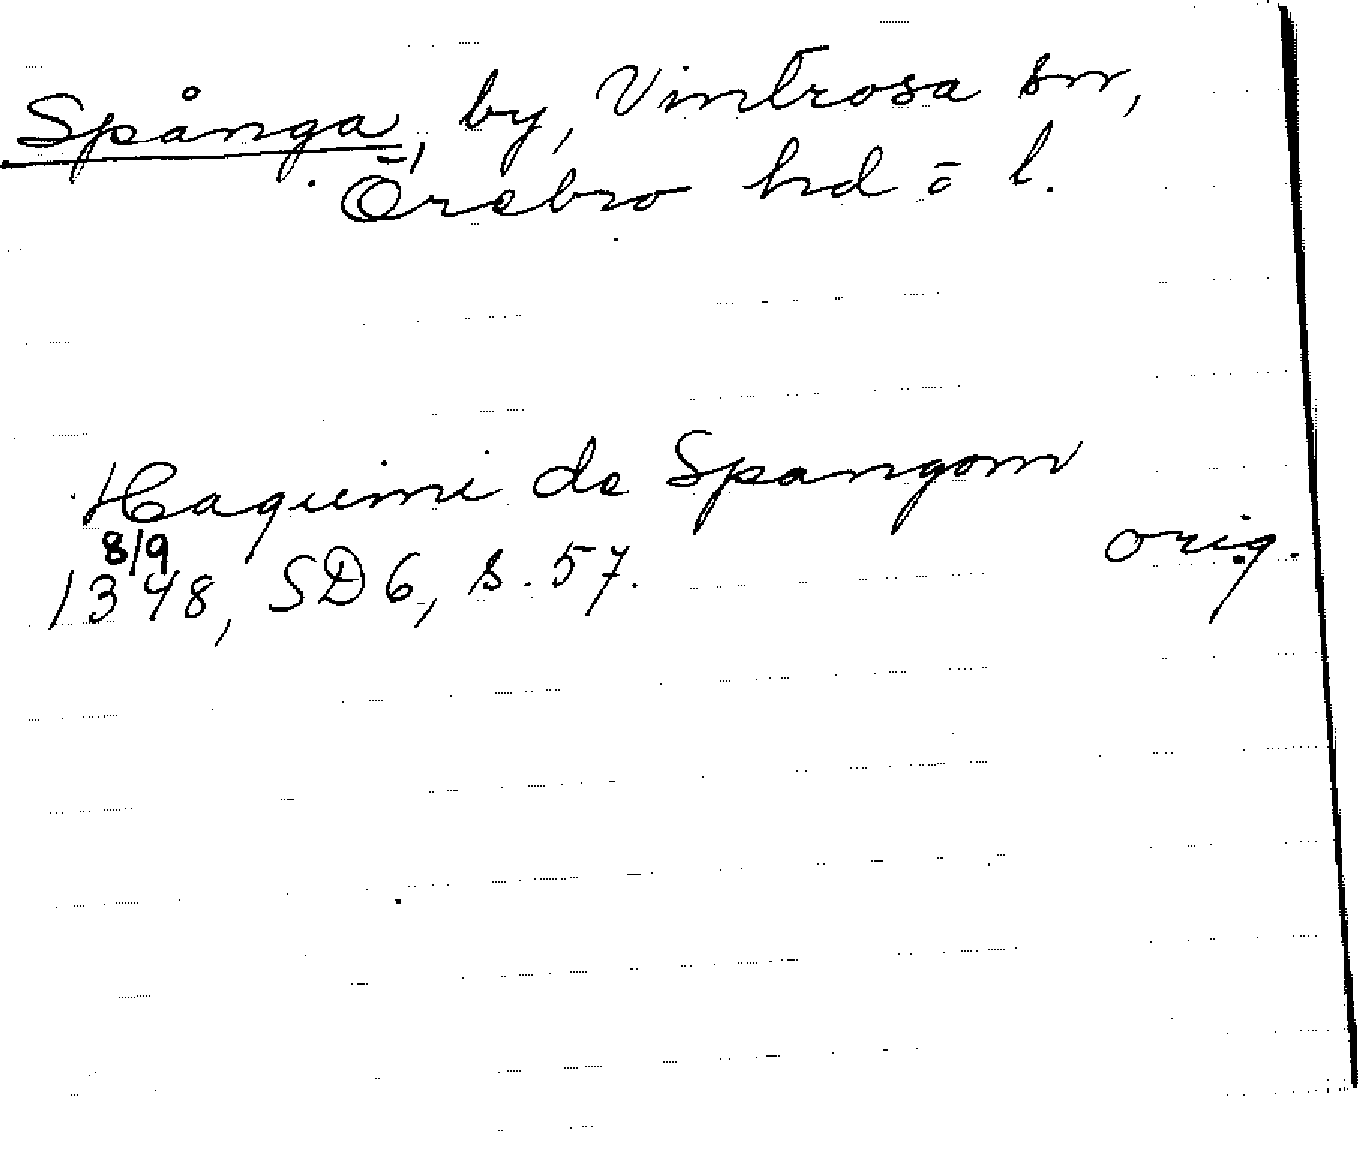 Spånga, by, Vintrosa sn,
Örebro hd o l.
Haquini de Spangom
8/9
1348, SD6, s. 57. orig.